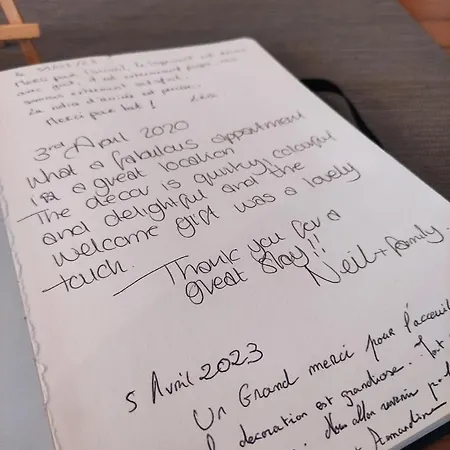 Merci pour l'accueil, le logement est décoré
avec goût, il est extrêmement propre, nous
sommes extrêmement satisfait.
La notice d'arrivée est précise.
Merci pour tout !
3rd April 2020
What a fabulous appartment
in a great location
The decor is quirky, colourful
and delightful and the
welcome gift was a lovely
touch.
Thank you for a
great stay!!
Neil + family.
5 Avril 2023
Un Grand merci pour l'acceuil
decoration est grandiose. Tout
Nous allon revenir
Amandine